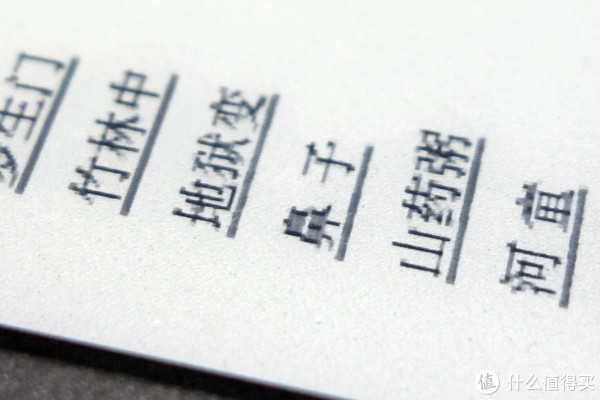 生门
竹林中
地狱变
鼻子
山药粥
河童
值 什么值得买